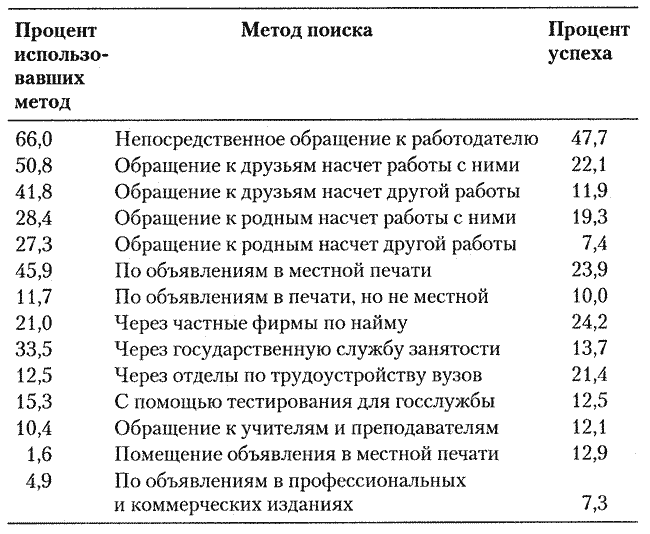 Процент Метод поиска Процент
использо- успеха
вавших
метод
66,0 Непосредственное обращение к работодателю 47,7
50,8 Обращение к друзьям насчет работы с ними 22,1
41,8 Обращение к друзьям насчет другой работы 11,9
28,4 Обращение к родным насчет работы с ними 19,3
27,3 Обращение к родным насчет другой работы 7,4
45,9 По объявлениям в местной печати 23,9
11,7 По объявлениям в печати, но не местной 10,0
21,0 Через частные фирмы по найму 24,2
33,5 Через государственную службу занятости 13,7
12,5 Через отделы по трудоустройству вузов 21,4
15,3 С помощью тестирования для госслужбы 12,5
10,4 Обращение к учителям и преподавателям 12,1
1,6 Помещение объявления в местной печати 12,9
4,9 По объявлениям в профессиональных
и коммерческих изданиях 7,3